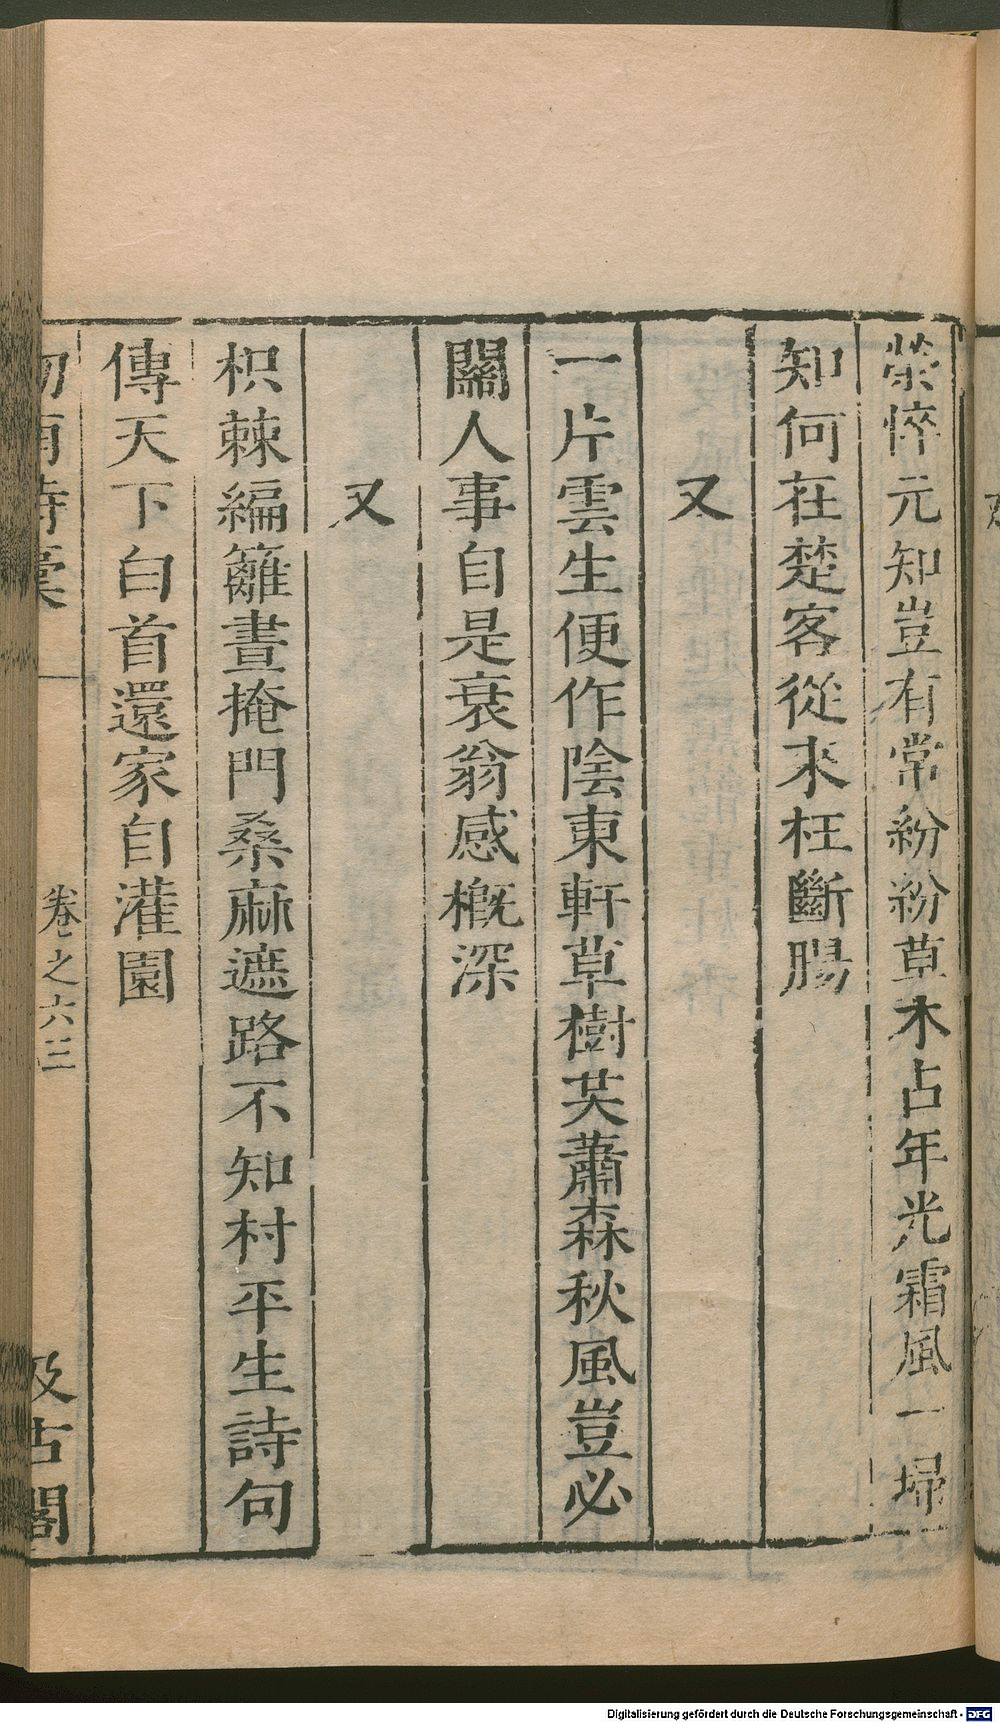 榮悴元知豈有常紛紛草木占年光霜風一埽
知何在楚客從來枉斷腸
又
一片雲生便作陰東軒草樹共蕭森秋風豈必
關人事自是衰翁感概深
又
枳棘編籬晝掩門桑麻遮路不知村平生詩句
傳天下白首還家自灌園
詩稾
卷之六三
及古閣
Digitalisierung gefördert durch die Deutsche Forschungsgemeinschaft - DFG